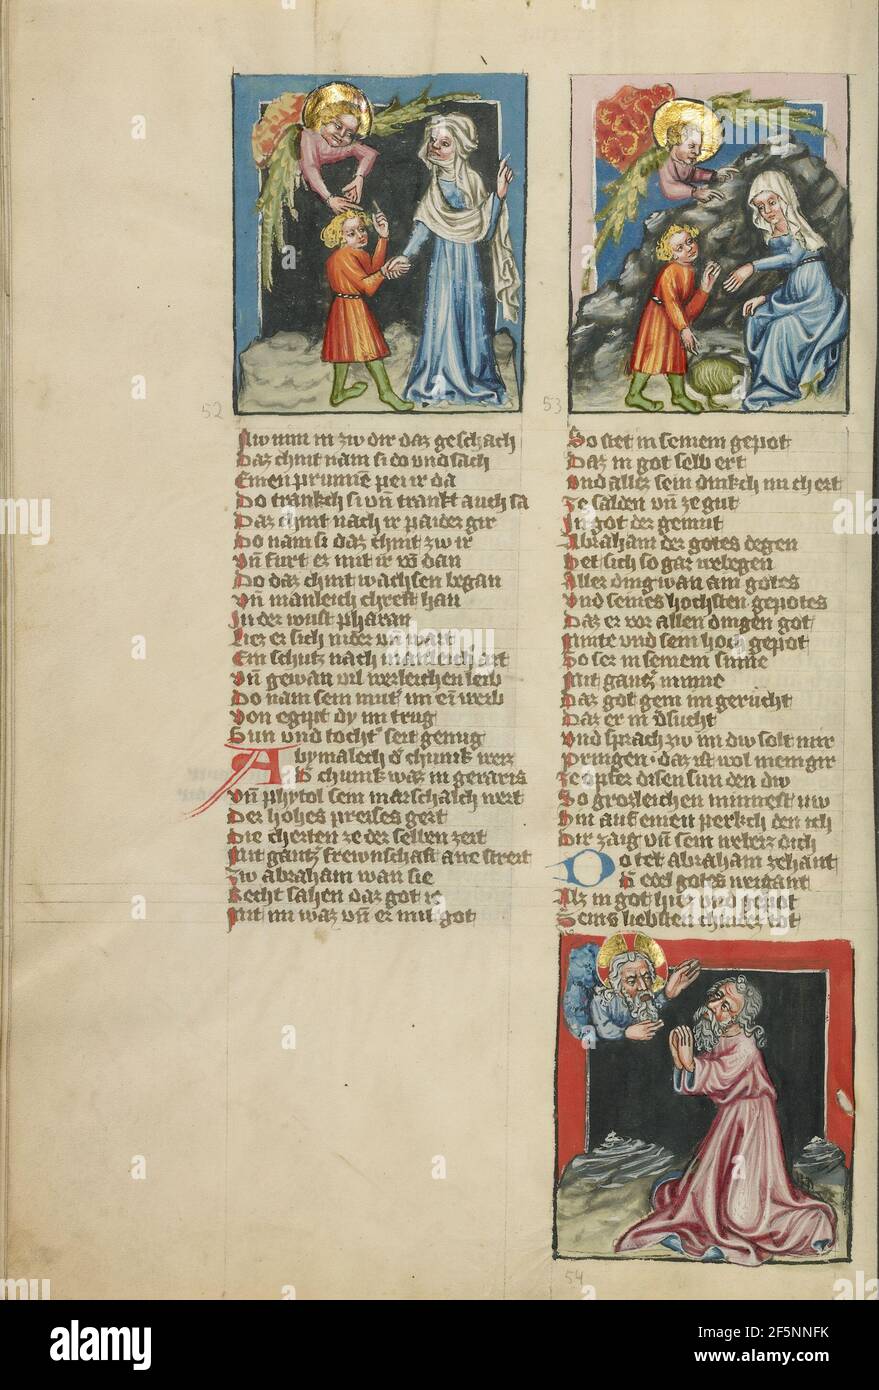 52
53
Nw nun in zw dir daz geschach
Daz chint nam si do und sach
Einen prunne pei ir da
Do tranckh si vn̄ trankt auch sa
Daz chint nach ir paider gir
Do nam si daz chint zw ir
Vn̄ furt ez mit ir vō dan
Do daz chint wachsen began
Vn̄ manleich chreft han
In der wust pharan
Liez er sich nider vn̄ wart
Ein schutz nach manleich art
Vn̄ gewan vil werleichen leib
Do nam sein mut' im ein weib
Von egipt dy im trug
Sun und tocht' seit genug
Abymalech d' chunik werz
D' chunik waz in geraris
Vn̄ phytol sein marschalch wert
Der hohes preises gert
Die cherten ze der selben zeit
Mit gantz' frewnschaft ane streit
Zw abraham wan sie
Recht sahen daz got ie
Mit im waz vn̄ er mit got
So stet in seinem gepot
Daz in got selb ert
Und allez sein dinkch im chert
Ze salden vn̄ ze gut
In got der gemut
Abraham der gotes degen
Het sich so gar webegen
Aller ding wan am gotes
Und seines hochsten gepotes
Daz er vor allen dingen got
Minte und sein hoch gepot
So ser in seinem sinne
Mit gantz' minne
Daz got gern im gerucht
Daz er in v'sucht
Und sprach zw im dw solt mir
Pringen daz ist wol mein gir
Ze opfer disen sun den dw
So grozleichen minnest nw
Hin auf einen perkch den ich
Dir zaig vn̄ sein weiz dich
Do tet abraham zehant
D' edel gotes weigant
Alz in got hiez und gepot
Seins liebsten chindez tot
54
alamy
Image ID: 2F5NNFK
www.alamy.com